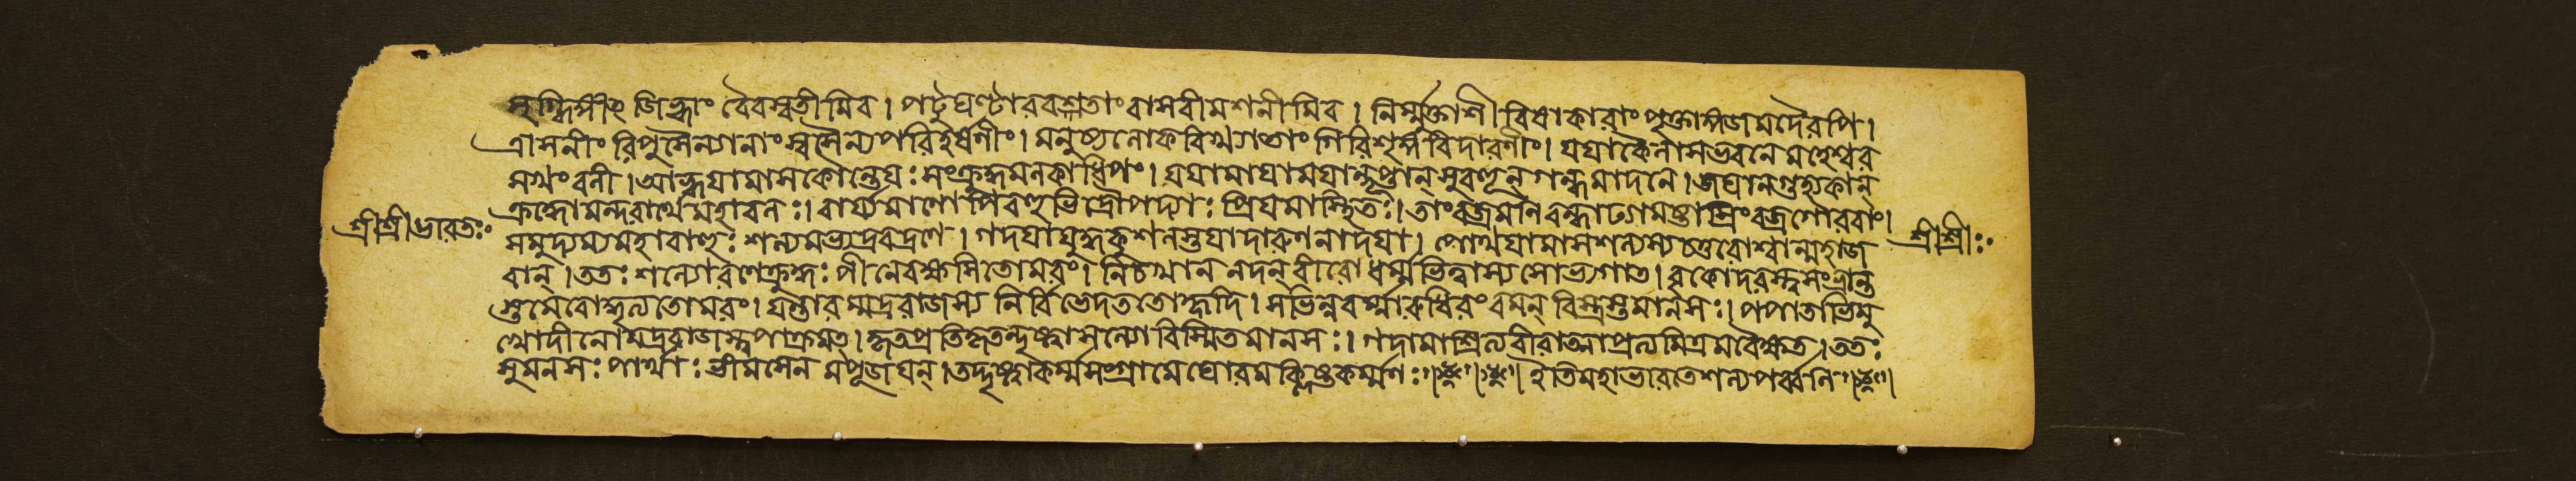 জিহ্বাং বৈবস্বতীমিব । পটুঘণ্টারবশতাং বাসবীমশনীমিব । নির্ম্মুক্তাশীবিষাকারাং পৃক্তাঙ্গজমদৈরপি ।
ত্রাসনীং রিপুসৈন্যানাং স্বসৈন্যপরিহর্ষণীং । মনুষ্যলোকবিখ্যাতাং গিরিশৃঙ্গবিদারণীং । যয়াকৈলাসভবনে মহেশ্বর
সখং বলী । আহ্বয়ামাস কৌন্তেয়ঃ সংক্রুদ্ধমলকাধিপং । যয়ামায়াময়ান্দৃপ্তান্ সুবহূন্ গন্ধমাদনে । জঘানগুহ্যকান্
ক্রুদ্ধোমন্দরার্থেমহাবলঃ । বার্য্যমাণোপিবহুভির্দ্রৌপদ্যাঃ প্রিয়মাস্থিতঃ । তাংবজ্রমনি অষ্টাস্রিংবজ্রগৌরবাং ।
শ্রীশ্রীভারতঃ
সমুদ্যম্যমহাবাহুঃ শল্যমভ্যদ্রবদ্রণে । গদয়াযুদ্ধকুশলস্তয়াদারুণনাদয়া । পোথয়ামাসশল্যস্যচতুরোশ্বান্মহাজ
শ্রীশ্রীঃ
বান্ । ততঃ শল্যোরণেক্রুদ্ধঃ পীনেবক্ষসিতোমরং । নিচখান নদন্ বীরো ধর্ম্মভিত্ত্বাস্যসোভ্যগাত । বৃকোদরস্ত্বসংভ্রান্ত
স্তমেবোদ্ধৃত্যতোমরং । যন্তারম্মদ্ররাজস্য নির্বিভেদততোহৃদি । সভিন্নবর্ম্মারুধিরং বমন্ বিত্রস্তমানসঃ । পপাতাভিমু
খোদীনোমদ্ররাজস্ত্বপাক্রমত্ । কৃতপ্রতিকৃতন্দৃষ্ট্বাসল্যোবিস্মিতমানসঃ । গদামাশ্রিত্যবীরাত্মাপ্রত্যমিত্রমবৈক্ষত । ততঃ
সুমনসঃ পার্থাঃ ভীমসেন মপূজয়ন্ । তদ্দৃষ্ট্বাকর্ম্মসংগ্রামেঘোরমক্লিষ্টকর্ম্মণঃ ॥ ইতিমহাভারতেশল্যপর্ব্বনি ॥